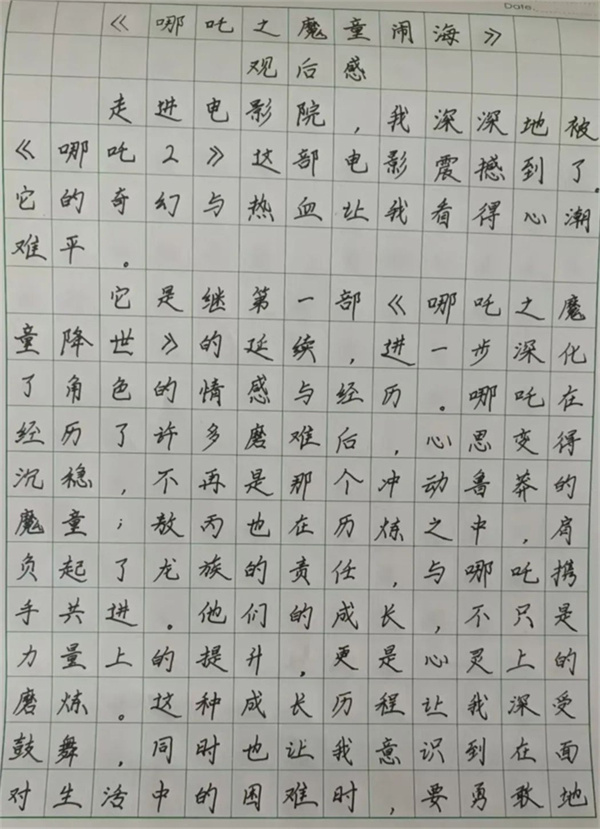 Date.
《哪吒之魔童闹海》
观后感
走进电影院，我深深地被
《哪吒2》这部电影震撼到了。
它的奇幻与热血让我看得心潮
难平。
它是继第一部《哪吒之魔
童降世》的延续，进一步深化
了角色的情感与经历。哪吒在
经历了许多磨难后，心思变得
沉稳，不再是那个冲动鲁莽的
魔童；敖丙也在历炼之中，肩
负起了龙族的责任，与哪吒携
手共进。他们的成长，不只是
力量上的提升，更是心灵上的
磨炼。这种成长历程让我深受
鼓舞，同时也让我意识到在面
对生活中的困难时，要勇敢地